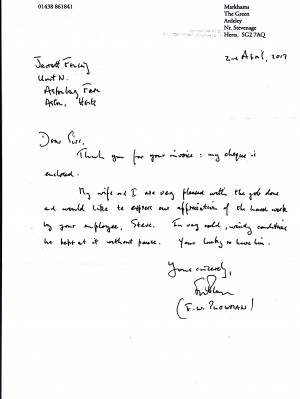 01438 861841
Markhams
The Green
Ardeley
Nr. Stevenage
Herts. SG2 7AQ
2nd April, 2017
Jarrett Fencing
Unit N.
Astonbury Farm
Aston, Herts
Dear Sirs,
Thank you for your invoice : my cheque is
enclosed.
My wife and I are very pleased with the job done
and would like to express our appreciation of the hard work
by your employee, Steve. In very cold, windy conditions
he kept at it without pause. Your lucky to have him.
Yours sincerely,
(F.W. PLOWMAN)